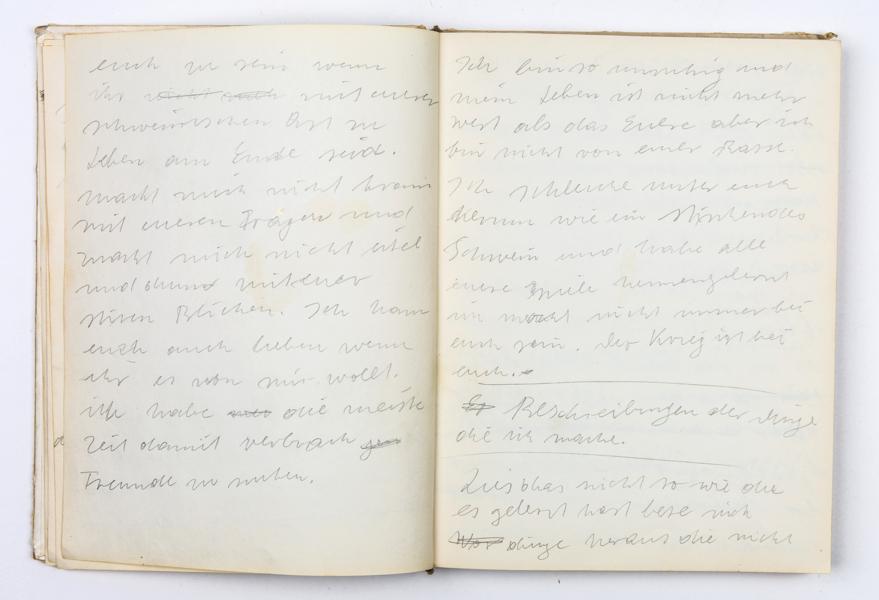 euch zu sein wenn
ihr nicht mit eurer
schweinischen Art zu
Leben am Ende seid.
macht mich nicht
mit eueren Fragen und
macht mich nicht eitel
und dumm mit euer
Blicken. Ich kann
euch auch lieben wenn
ihr es von mir wollt.
ich habe die meiste
Zeit damit verbrach
Freunde zu suchen.
Ich bin so unruhig und
mein Leben ist nicht mehr
wert als das Euere aber ich
bin nicht von eurer Rasse.
Ich schleiche unter euch
herum wie ein stinkendes
Schwein und habe alle
euere Spiele kennengelernt
um nicht immer bei
euch sein. der Krieg ist bei
euch.
Beschreibungen der dinge
die ich mache.
Lies das nicht so wie du
es gelernt hast lese nicht
dinge heraus die nicht